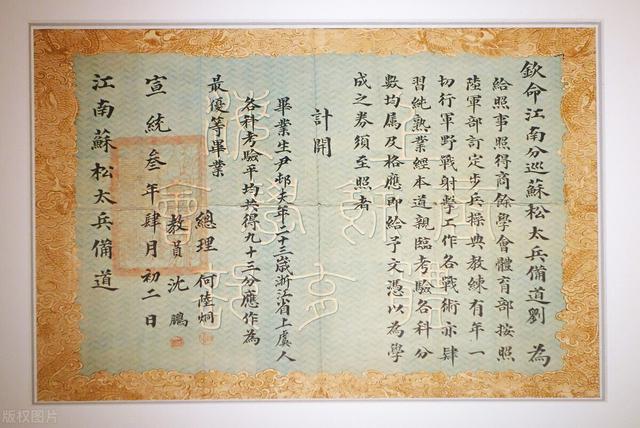 欽命江南分巡蘇松太兵備道劉 為
給照事照得商餘學會體育部按照
陸軍部訂定步兵操典教練有年一
切行軍野戰射擊工作各戰術亦肆
習純熟業經本道親臨考驗各科分
數均屬及格應即給予文憑以為學
成之券須至照者
計開
畢業生尹邨夫年二十三歲浙江省上虞人
各科考驗平均共得九十三分應作為
最優等畢業
總理 何陸炯
教員 沈鵬
宣統叁年肆月初二日
江南蘇松太兵備道
版权图片